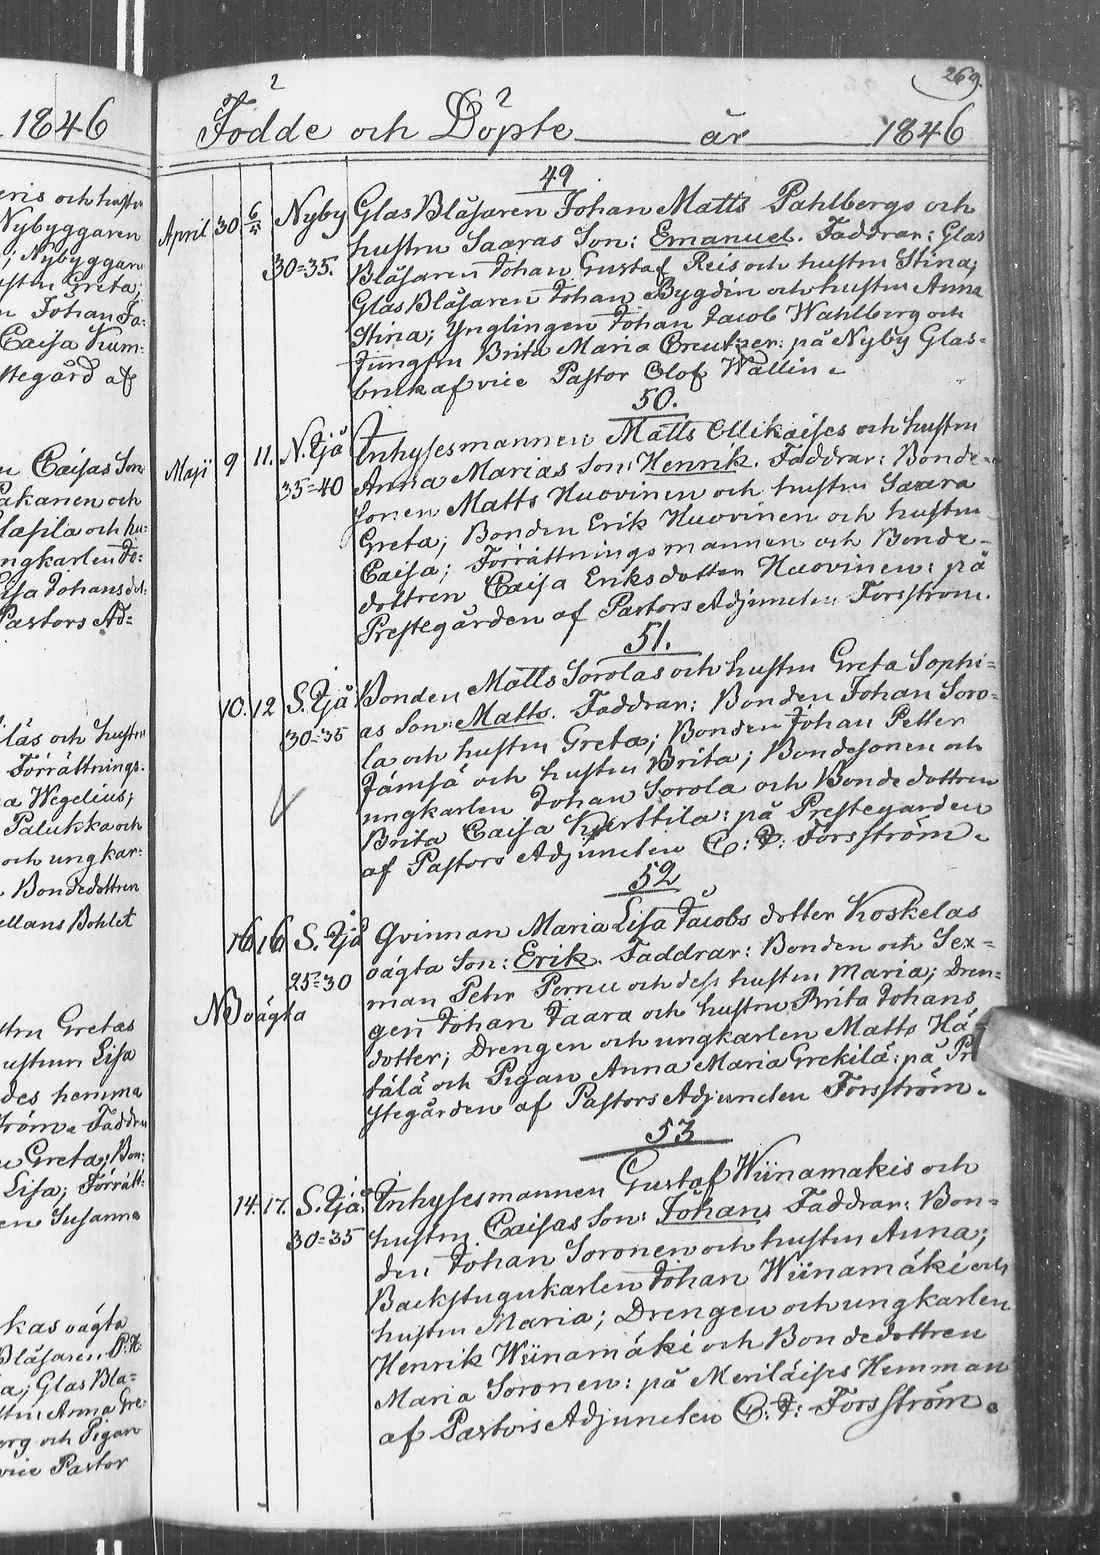 1846
eris och hustru
Nybyggaren
; Nybyggare
Greta;
Johan Jo=
Caisa Kum=
stegård af
Caisas Son
Pakanen och
lapila och hu=
ngkarlen Jo=
isa Johansdot.
Pastors Ad=
iläs och hustru
Förrättnings=
a Wegelius;
Palukka och
och ungkar=
Bondedottren
ellans Bohlet
stru Gretas
Lisa
des hemma
ström. Faddr
Greta; Bon=
Lisa; Förrätt=
en Susanna
kas oägta
Bläsaren P. H.
a; Glas Blä=
Anna Gre=
org och Pigan
vice Pastor
269.
Födde och Döpte år 1846
49
April 30 6/5 Nyby Glas Bläsaren Johan Matts Pahlbergs och
hustru Saaras Son: Emanuel. Faddrar: Glas
30=35. Bläsaren Johan Gustaf Reis och hustru Stina;
Glas Bläsaren Johan Bygdin och hustru Anna
Stina; Ynglingen Johan Jacob Wahlberg och
Jungfru Brita Maria Creutzer: på Nyby Glas=
bruk af vice Pastor Olof Wallin.
50.
Maji 9 11. N. Ijå Inhysesmannen Matts Ollikaises och hustru
35=40 Anna Marias Son: Henrik. Faddrar: Bonde=
sonen Matts Huovinen och hustru Saara
Greta; Bonden Erik Huovinen och hustru
Caisa; Förrättningsmannen och Bonde=
dottren Caisa Eriksdotter Huovinen: på
Prestegården af Pastors Adjuncten Forsström.
51.
10. 12 S. Ijå Bonden Matts Sorolas och hustru Greta Sophi=
30=35 as Son: Matts. Faddrar: Bonden Johan Soro=
la och hustru Greta; Bonden Johan Petter
Jämsä och hustru Brita; Bondesonen och
ungkarlen Johan Sorola och Bondedottren
Brita Caisa Kurttila: på Prestegården
af Pastors Adjuncten C: F: Forsström.
52
16 16 S. Ijå Qvinnan Maria Lisa Jacobs dotter Koskelas
25=30 oägta Son: Erik. Faddrar: Bonden och Sex=
man Peter Pernu och dess hustru Maria; Dren=
NB oägta gen Johan Taara och hustru Brita Johans
dotter; Drengen och ungkarlen Matts Hä=
tälä och Pigan Anna Maria Grekilä: på Pr
stegården af Pastors Adjuncten Forsström.
53
14. 17. S. Ijå Inhysesmannen Gustaf Wiinamakis och
30=35 hustru Caisas Son: Johan. Faddrar: Bon=
den Johan Soronen och hustru Anna;
Backstugukarlen Johan Wiinamäki och
hustru Maria; Drengen och ungkarlen
Henrik Wiinamäki och Bondedottren
Maria Soronen: på Meriläises Hemman
af Pastors Adjuncten C: F: Forsström.